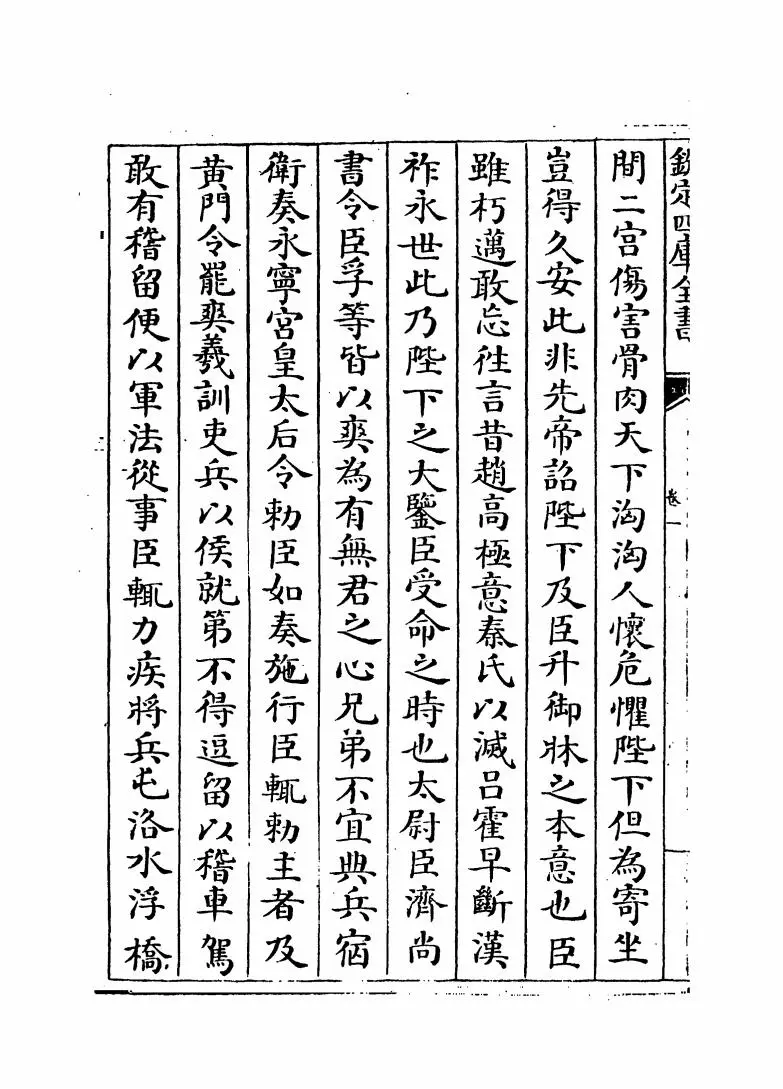 欽定四庫全書
卷一
間二宫傷害骨肉天下洶洶人懷危懼陛下但為寄坐
豈得久安此非先帝詔陛下及臣升御牀之本意也臣
雖朽邁敢忘徃言昔趙高極意秦氏以滅吕霍早斷漢
祚永世此乃陛下之大鑒臣受命之時也太尉臣濟尚
書令臣孚等皆以爽為有無君之心兄弟不宜典兵宿
衛奏永寧宫皇太后令勅臣如奏施行臣輒勅主者及
黄門令罷爽羲訓吏兵以侯就第不得逗留以稽車駕
敢有稽留便以軍法從事臣輒力疾將兵屯洛水浮橋